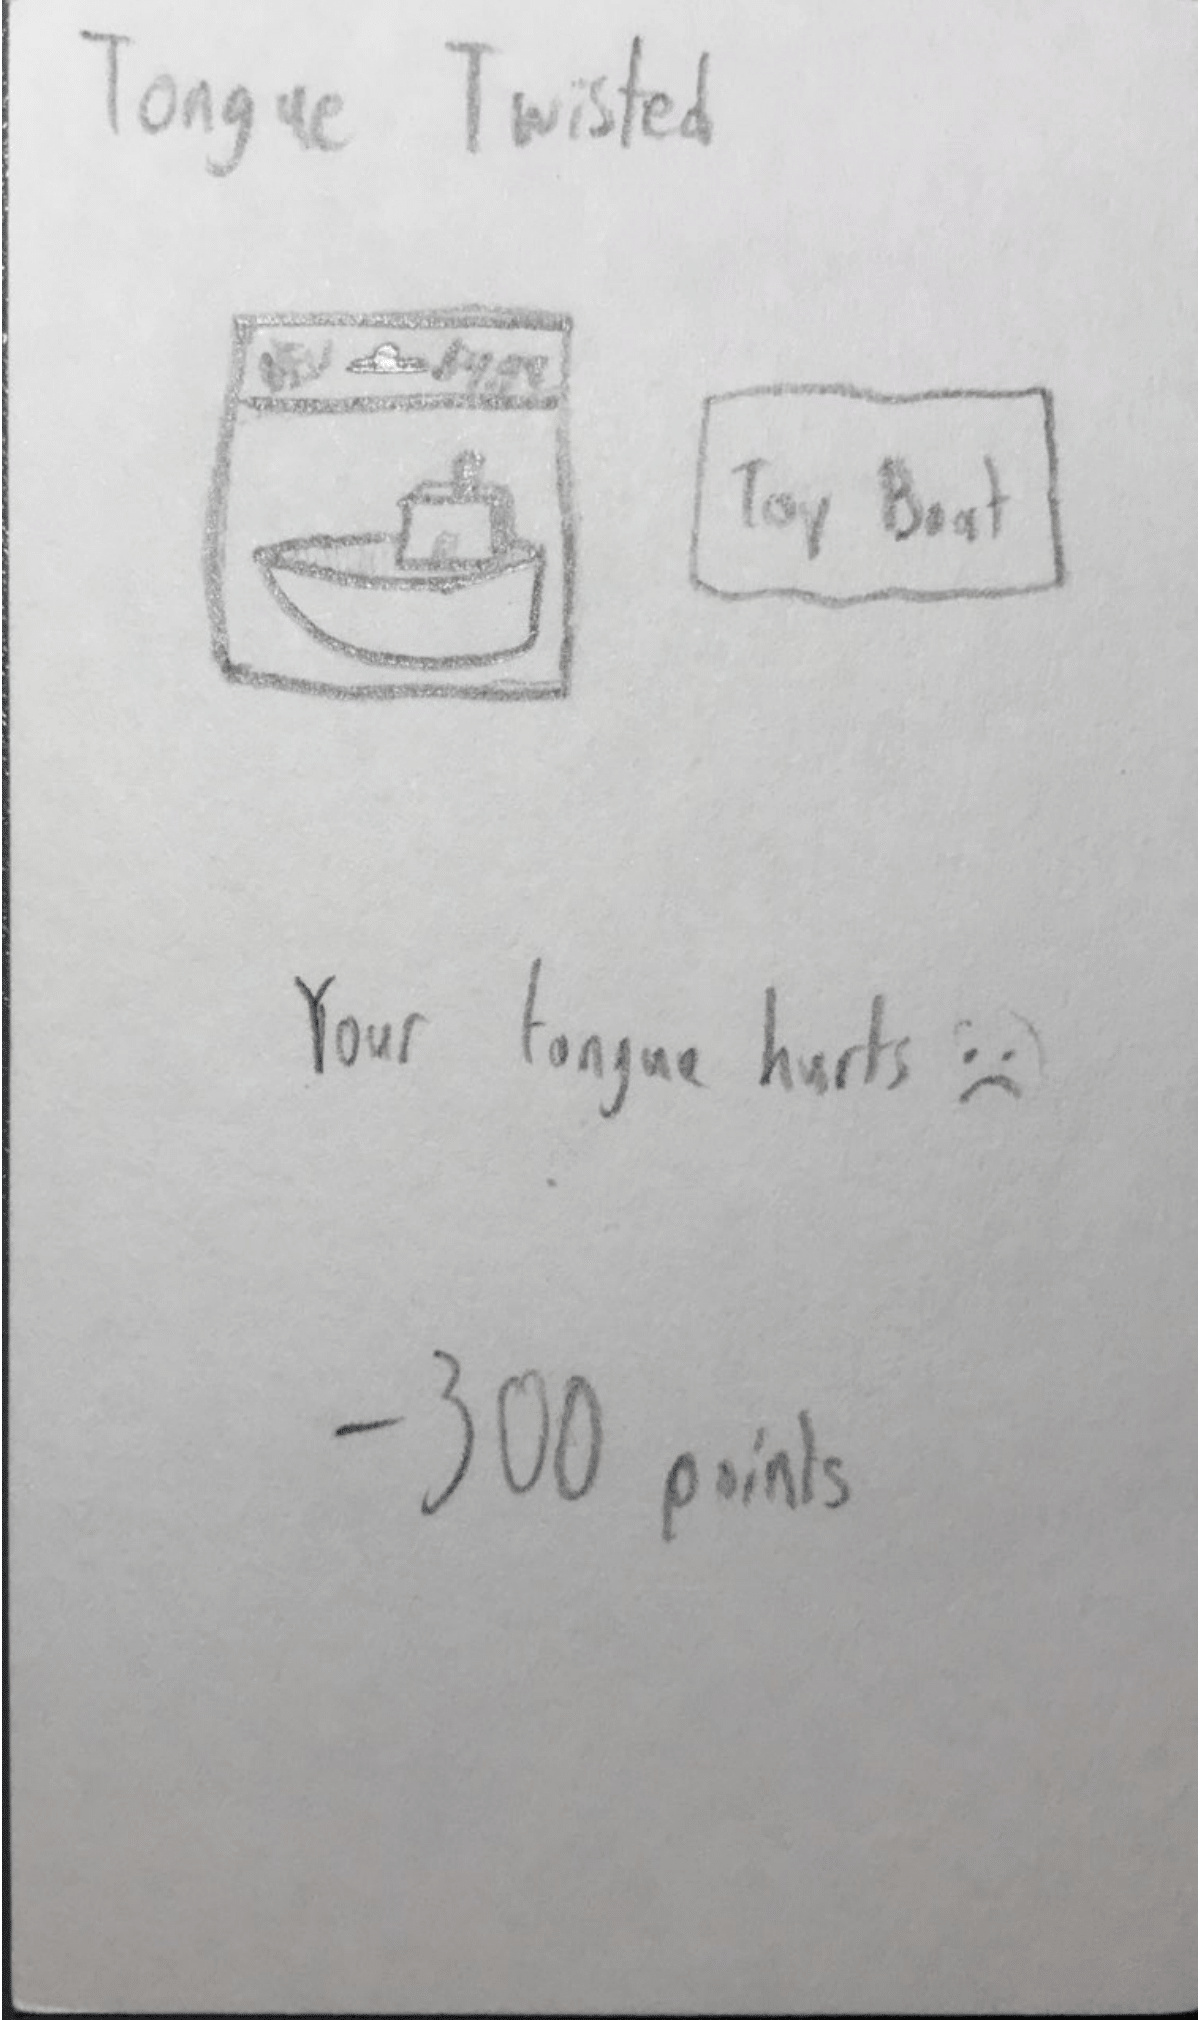 Tongue Twisted
$4.99
Toy Boat
Your tongue hurts :(
-300 points